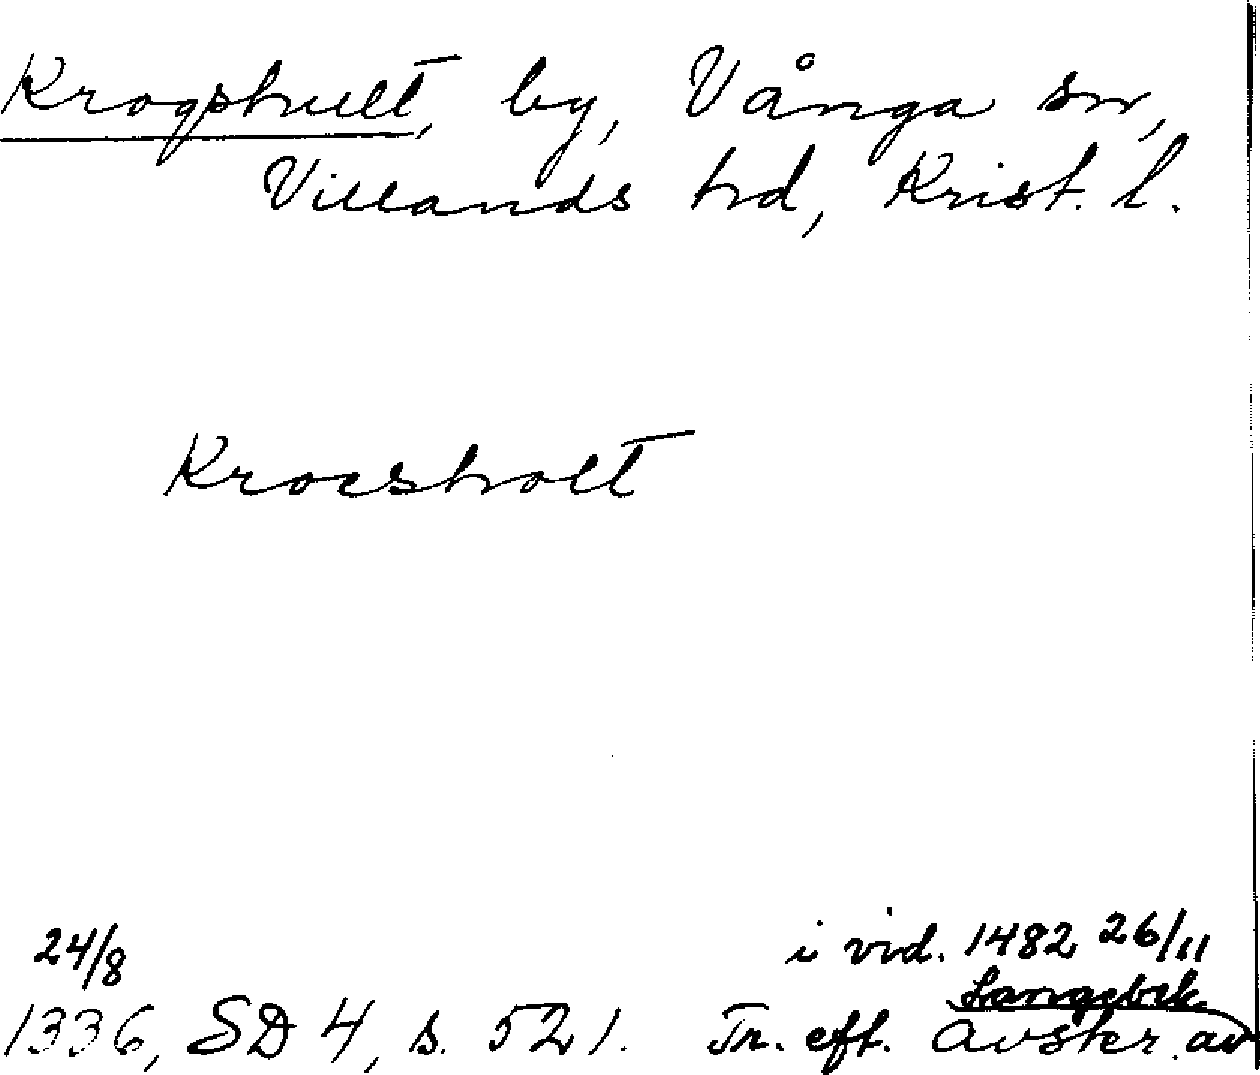 Krogshult, by, Vånga sn,
Villands hd, Krist. l.
Krocsholt
24/8 i vid. 1482 26/11
Langebek
1336, SD 4, s. 521. Tr. eft. avskr. av